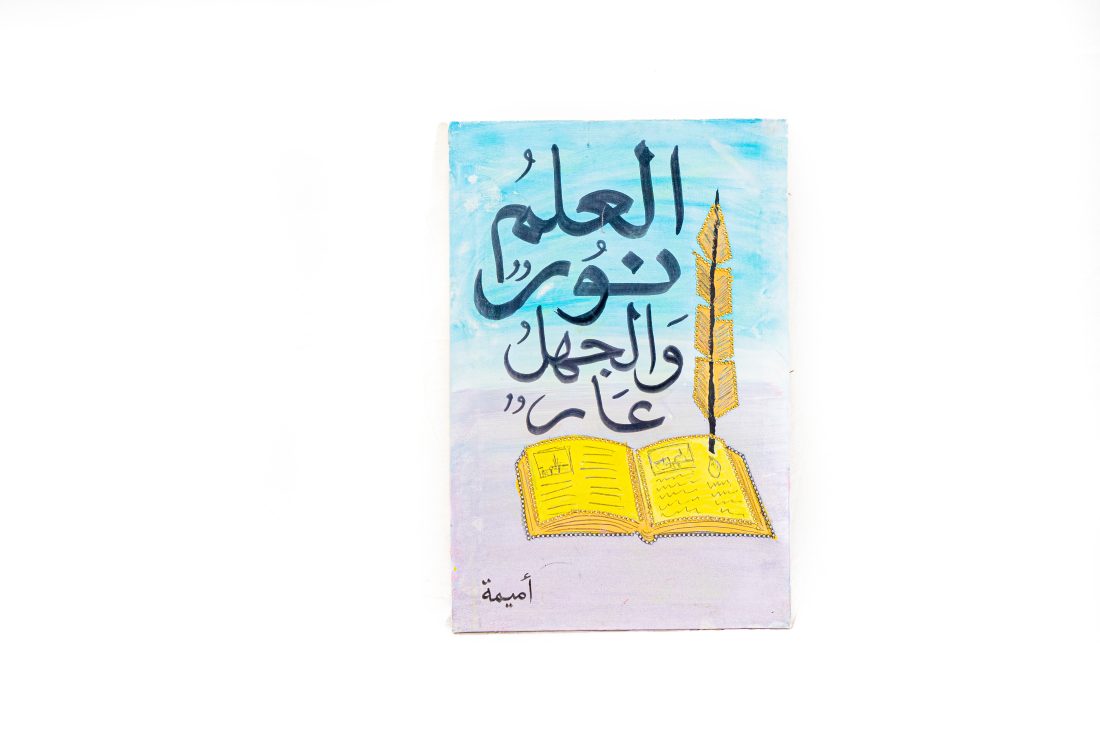 العلمُ
نُورٌ
وَالجهلُ
عَارٌ
أميمة